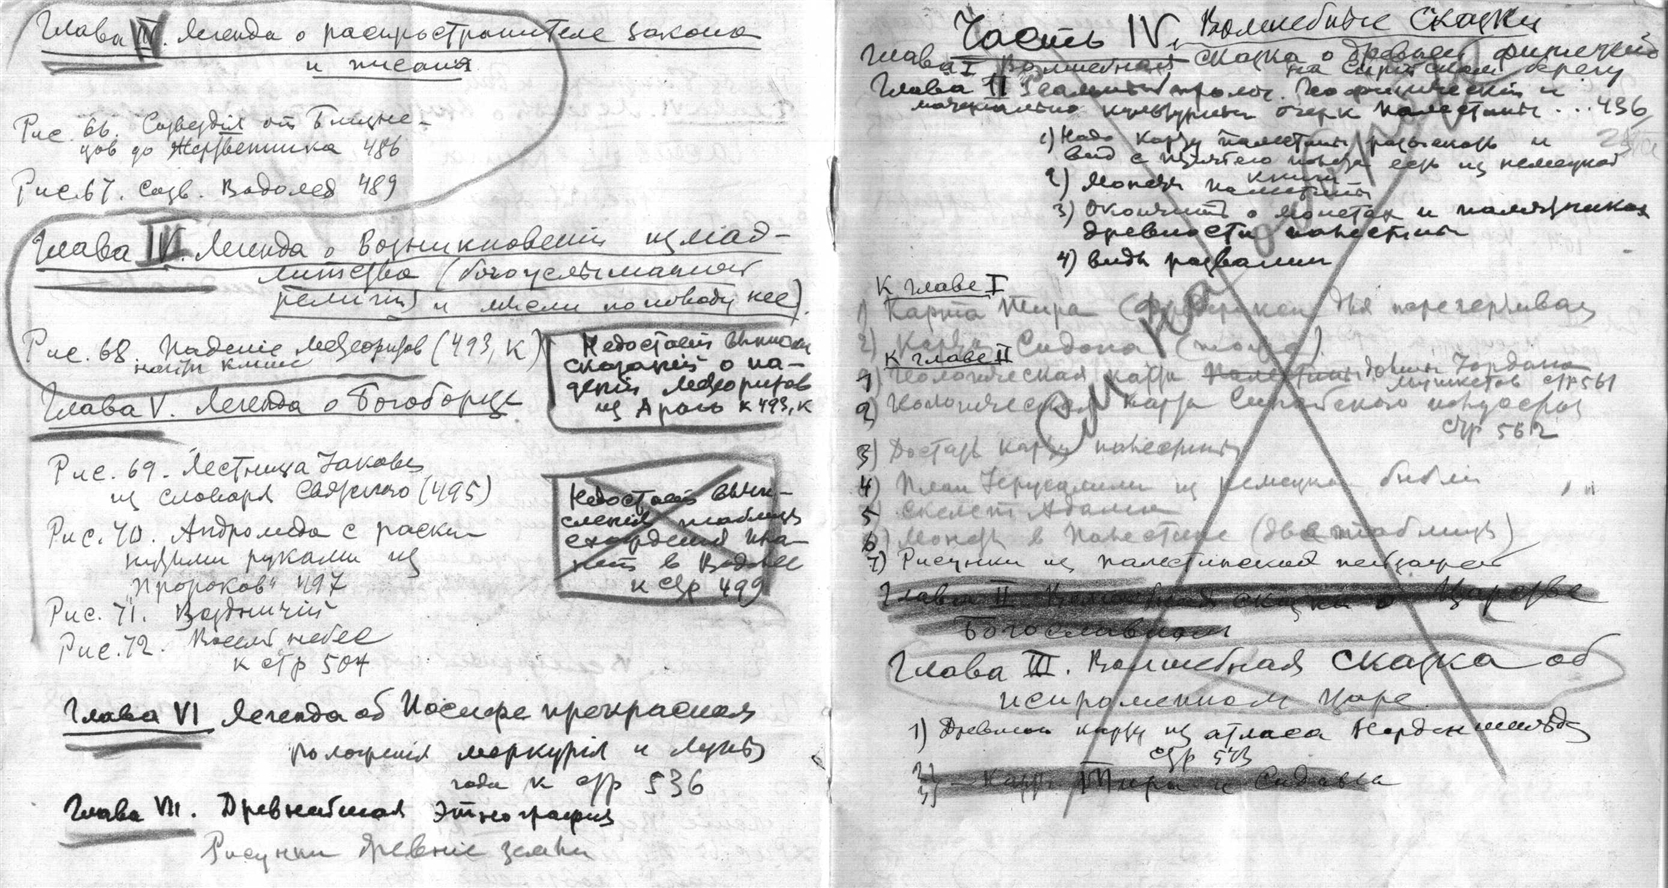 Глава IV. Легенда о распространителе закона
и писания
Рис. 66. Созвездия от Близне-
цов до Жертвенника 486
Рис. 67. Созв. Водолея 489
Глава IV. Легенда о возникновении израиль-
литства (богоуслышанной
религии и мысли по поводу нее).
Рис. 68. Падение метеоритов (493, к)
Глава V. Легенда о Богоборце.
Недостает
сказаний о па-
дении метеоритов
из Араго к 493, к
Рис. 69. Лестница Iакова
из словаря (495)
Рис. 70. Андромеда с раски-
нутыми руками из
"Пророков" 497
Рис. 71. Возничий
Рис. 72. небе
к стр 504
Недостает вычи-
сления таблицы
к стр 499
Глава VI Легенда об Иосифе прекрасном
положения меркурия и луны
к стр 536
Глава VII. Древнейшая этнография
Рисунки древние
Часть IV. Волшебные сказки
Глава I Волшебная сказка о древней
на Сирийском берегу
Глава II Реальный пролог. Географический и
материально культурный очерк Палестины... 436
1) Надо карту палестины и
вид с птичьего есть из немецкой
книги
2) Монеты палестины
3) Окончить о монетах и памятниках
древности палестины
4) виды развалин
К главе I
1) Карта Тира
2) Карта Сидона
К главе II
1) Геологическая карта Палестины долины Иордана
стр 561
2) Геологическая карта Синайского полуострова
стр 562
3) Достать карту палестины
4) План Iерусалима из немецкой библии
5) скелет Адама
6) Монеты в Палестине (две таблицы)
7) Рисунки из палестинской
Глава II Волшебная сказка о Царстве
Богославном
Глава III. Волшебная сказка об
царе
1) Древнюю карту из атласа Норденшильда
стр 573
2)
3) Карта Тира и Сидона
См на обороте